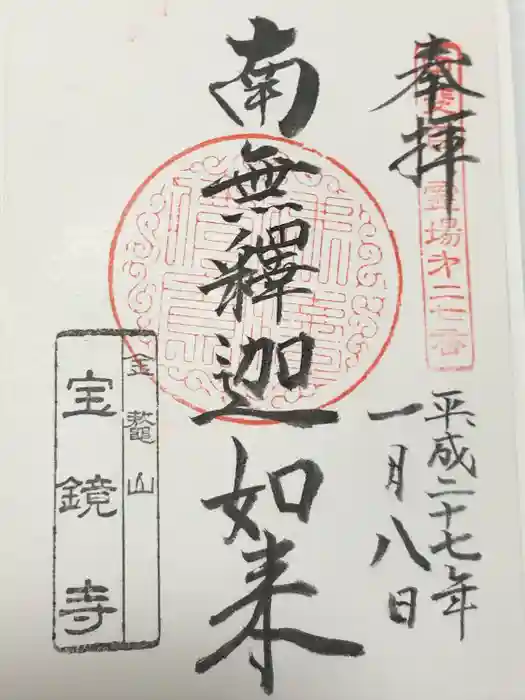 奉拝
霊場第二七番
平成二十七年
一月八日
南無釋迦如来
金鼇山
宝鏡寺